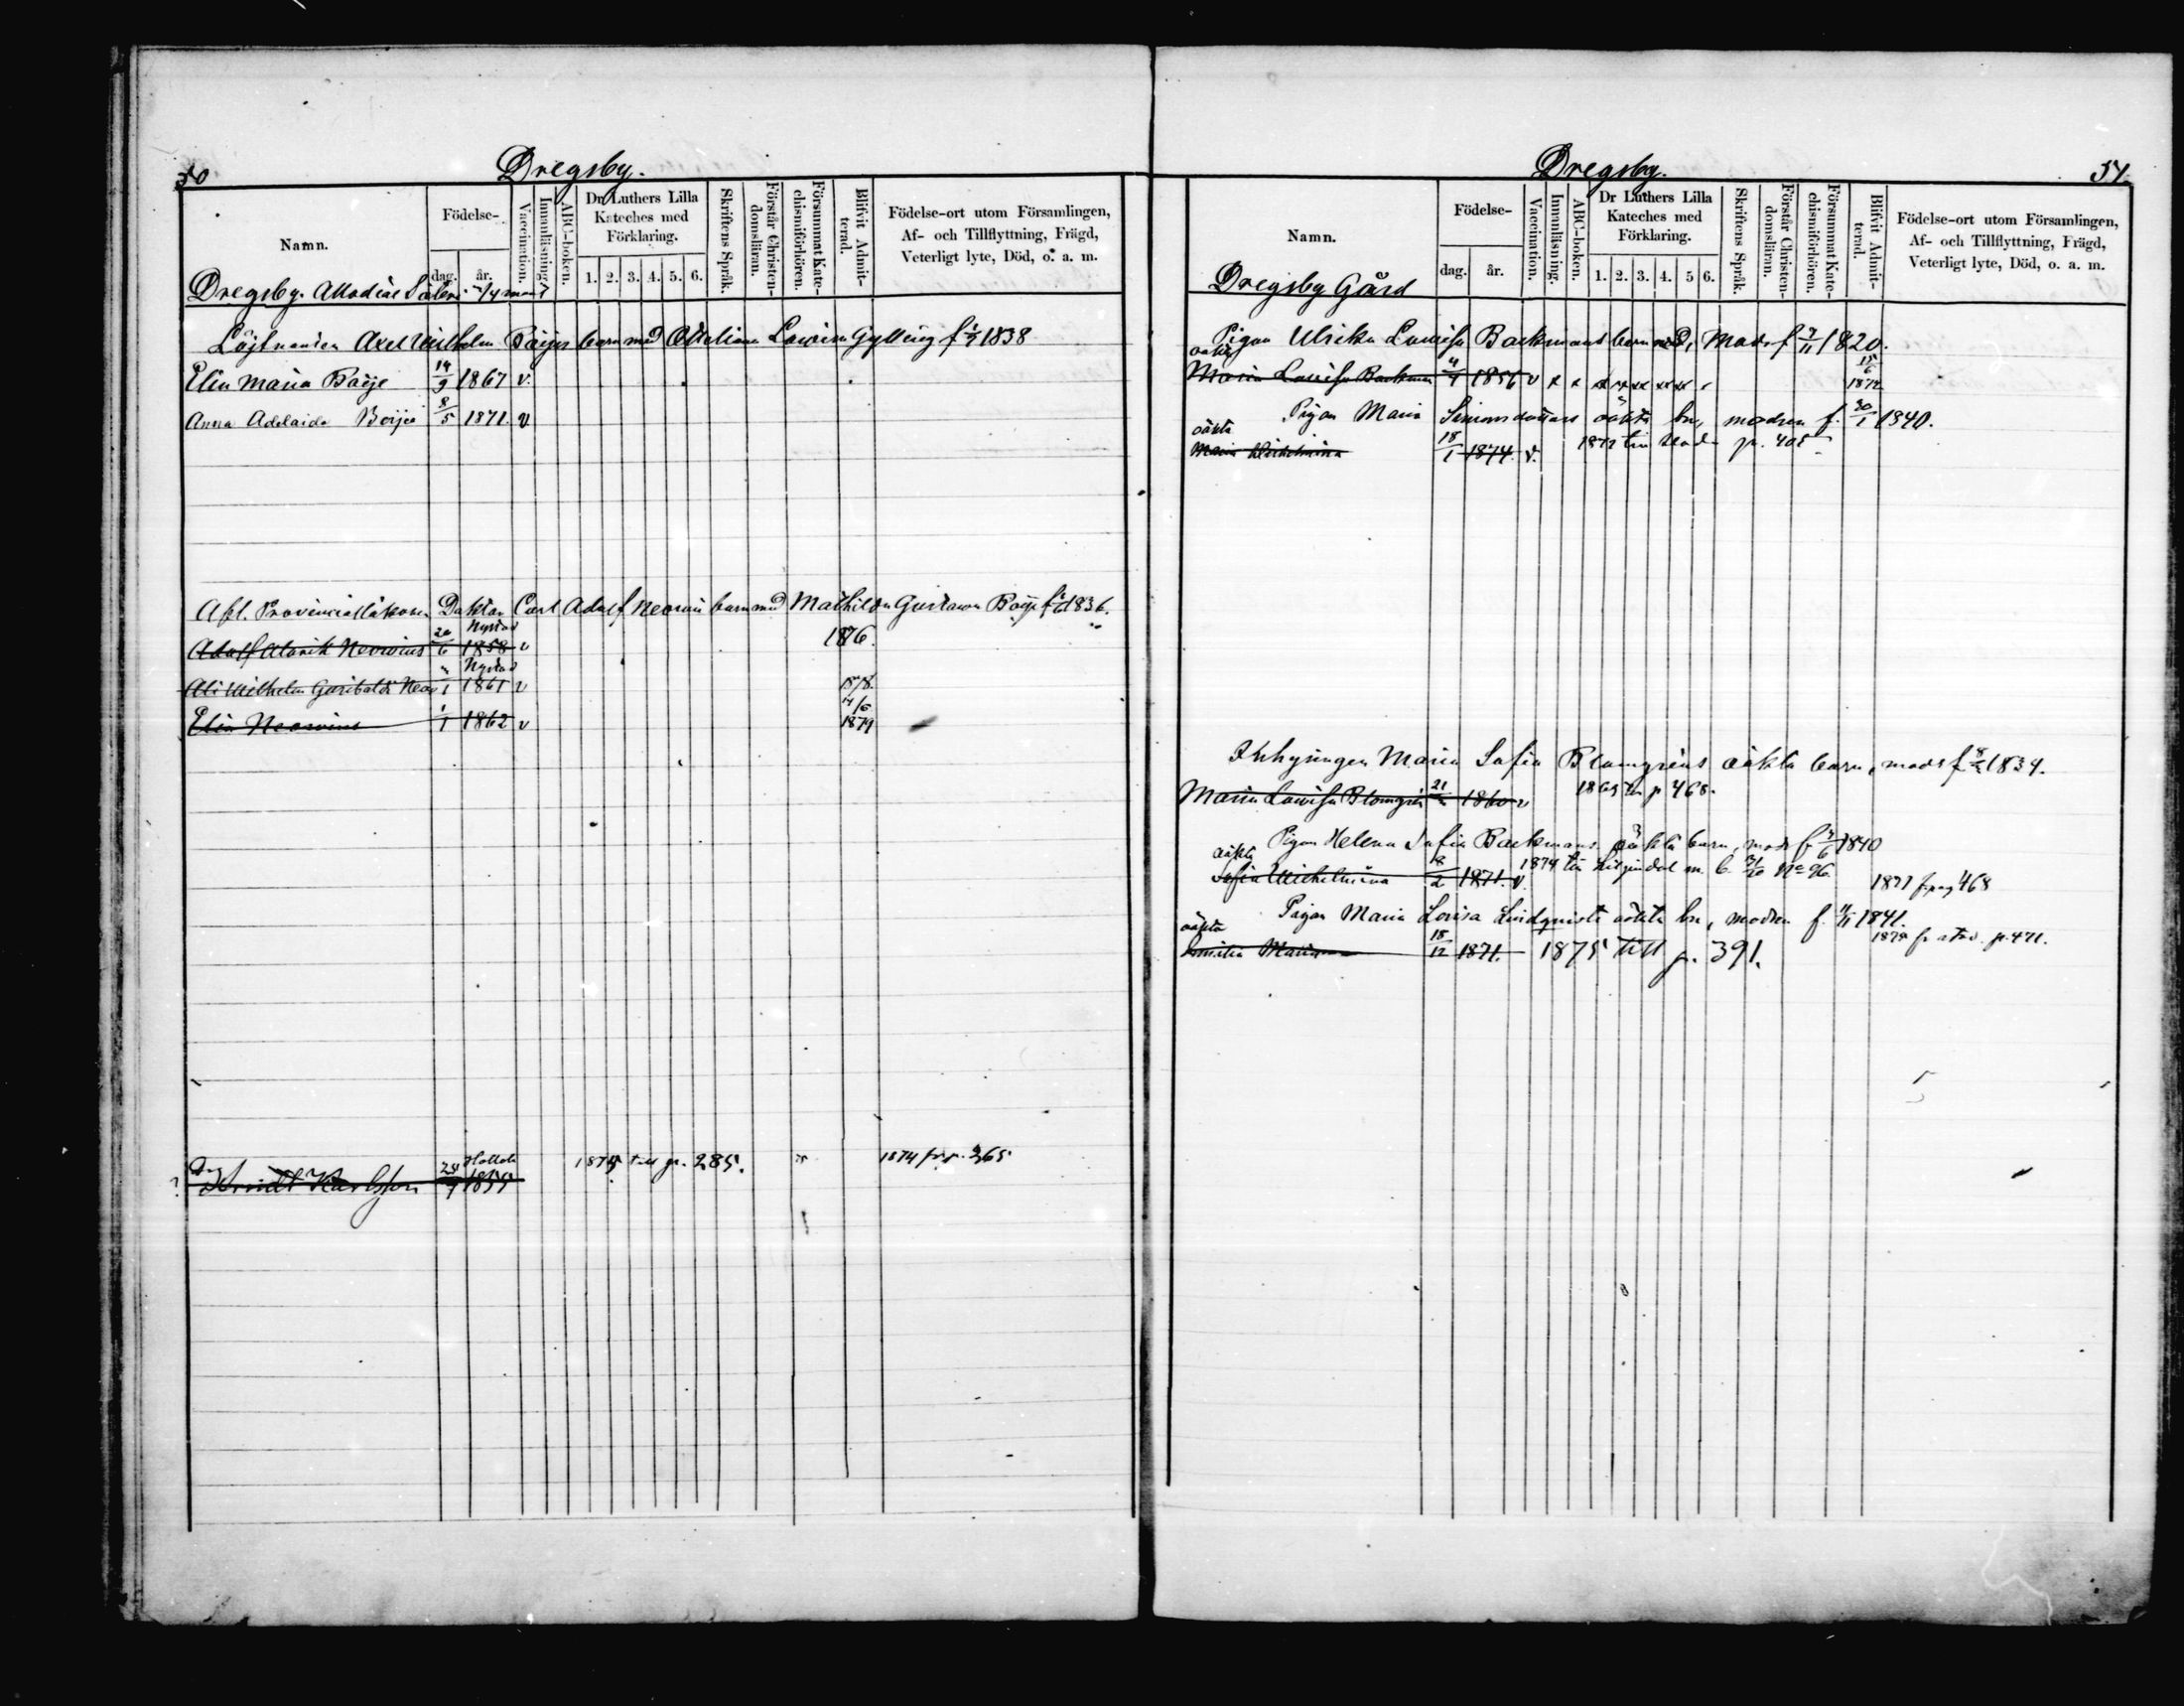 50
Dregsby.
Namn.
Födelse-
dag.
år.
Vaccination.
Innanläsning.
ABC-boken.
Dr Luthers Lilla
Kateches med
Förklaring.
1. 2. 3. 4. 5. 6.
Skriftens Språk.
Förstår Christen-
domsläran.
Försummat Kate-
chismiförhören.
Blifvit Admit-
terad.
Födelse-ort utom Församlingen,
Af- och Tillflyttning, Frägd,
Veterligt lyte, Död, o. a. m.
Dregsby. Allodial Säteri
Löjtnanten Axel Wilhelm Boijes barn med Lovisa Gylling 1838
Elin Maria Boije 14/9 1867 v.
Anna Adelaide Boije 8/5 1871. v.
Afl. Provincialläkaren Doktor Carl Adolf Neovii barn med Mathilda Gustava Boije 1836.
Nystad
Adolf Alarik Neovius 1858 v 1876.
Nystad
Ali Wilhelm Garibaldi 1861 v 1878.
14/6
Elin Neovius 1/1 1862 v 1879
Hollola
Karlsson 1855 1875 till p. 285. 1874 fr. p. 365
51.
Dregsby.
Namn.
Födelse-
dag.
år.
Vaccination.
Innanläsning.
ABC-boken.
Dr Luthers Lilla
Kateches med
Förklaring.
1. 2. 3. 4. 5 6.
Skriftens Språk.
Förstår Christen-
domsläran.
Försummat Kate-
chismiförhören.
Blifvit Admit-
terad.
Födelse-ort utom Församlingen,
Af- och Tillflyttning, Frägd,
Veterligt lyte, Död, o. a. m.
Dregsby Gård
Pigan Ulrika Lovisa Backmans barn, Modr f 1820.
oäkta
Maria Lovisa Backman 1856 v 15/6 1872
Pigan Maria Simonsdotters oäkta bn, modren f. 30/1 1840.
oäkta
Maria Wilhelmina 18/1 1874. v. p. 405
Inhysingen Maria Sofia Blomgrens oäkta barn, modr f 1834.
Maria Lovisa Blomgren 1860 v 1865 till p 468.
Pigan Helena Sofia Backmans oäkta barn, modr f 1840
oäkta
Sofia Wilhelmina 8/2 1871. v. 1874 1871 fr pag 468
Pigan Maria Lovisa Lindqvists oäkta bn, modren f. 11/11 1841.
oäkta
Emilia Maria 18/12 1871. 1875 till p. 391. p. 471.